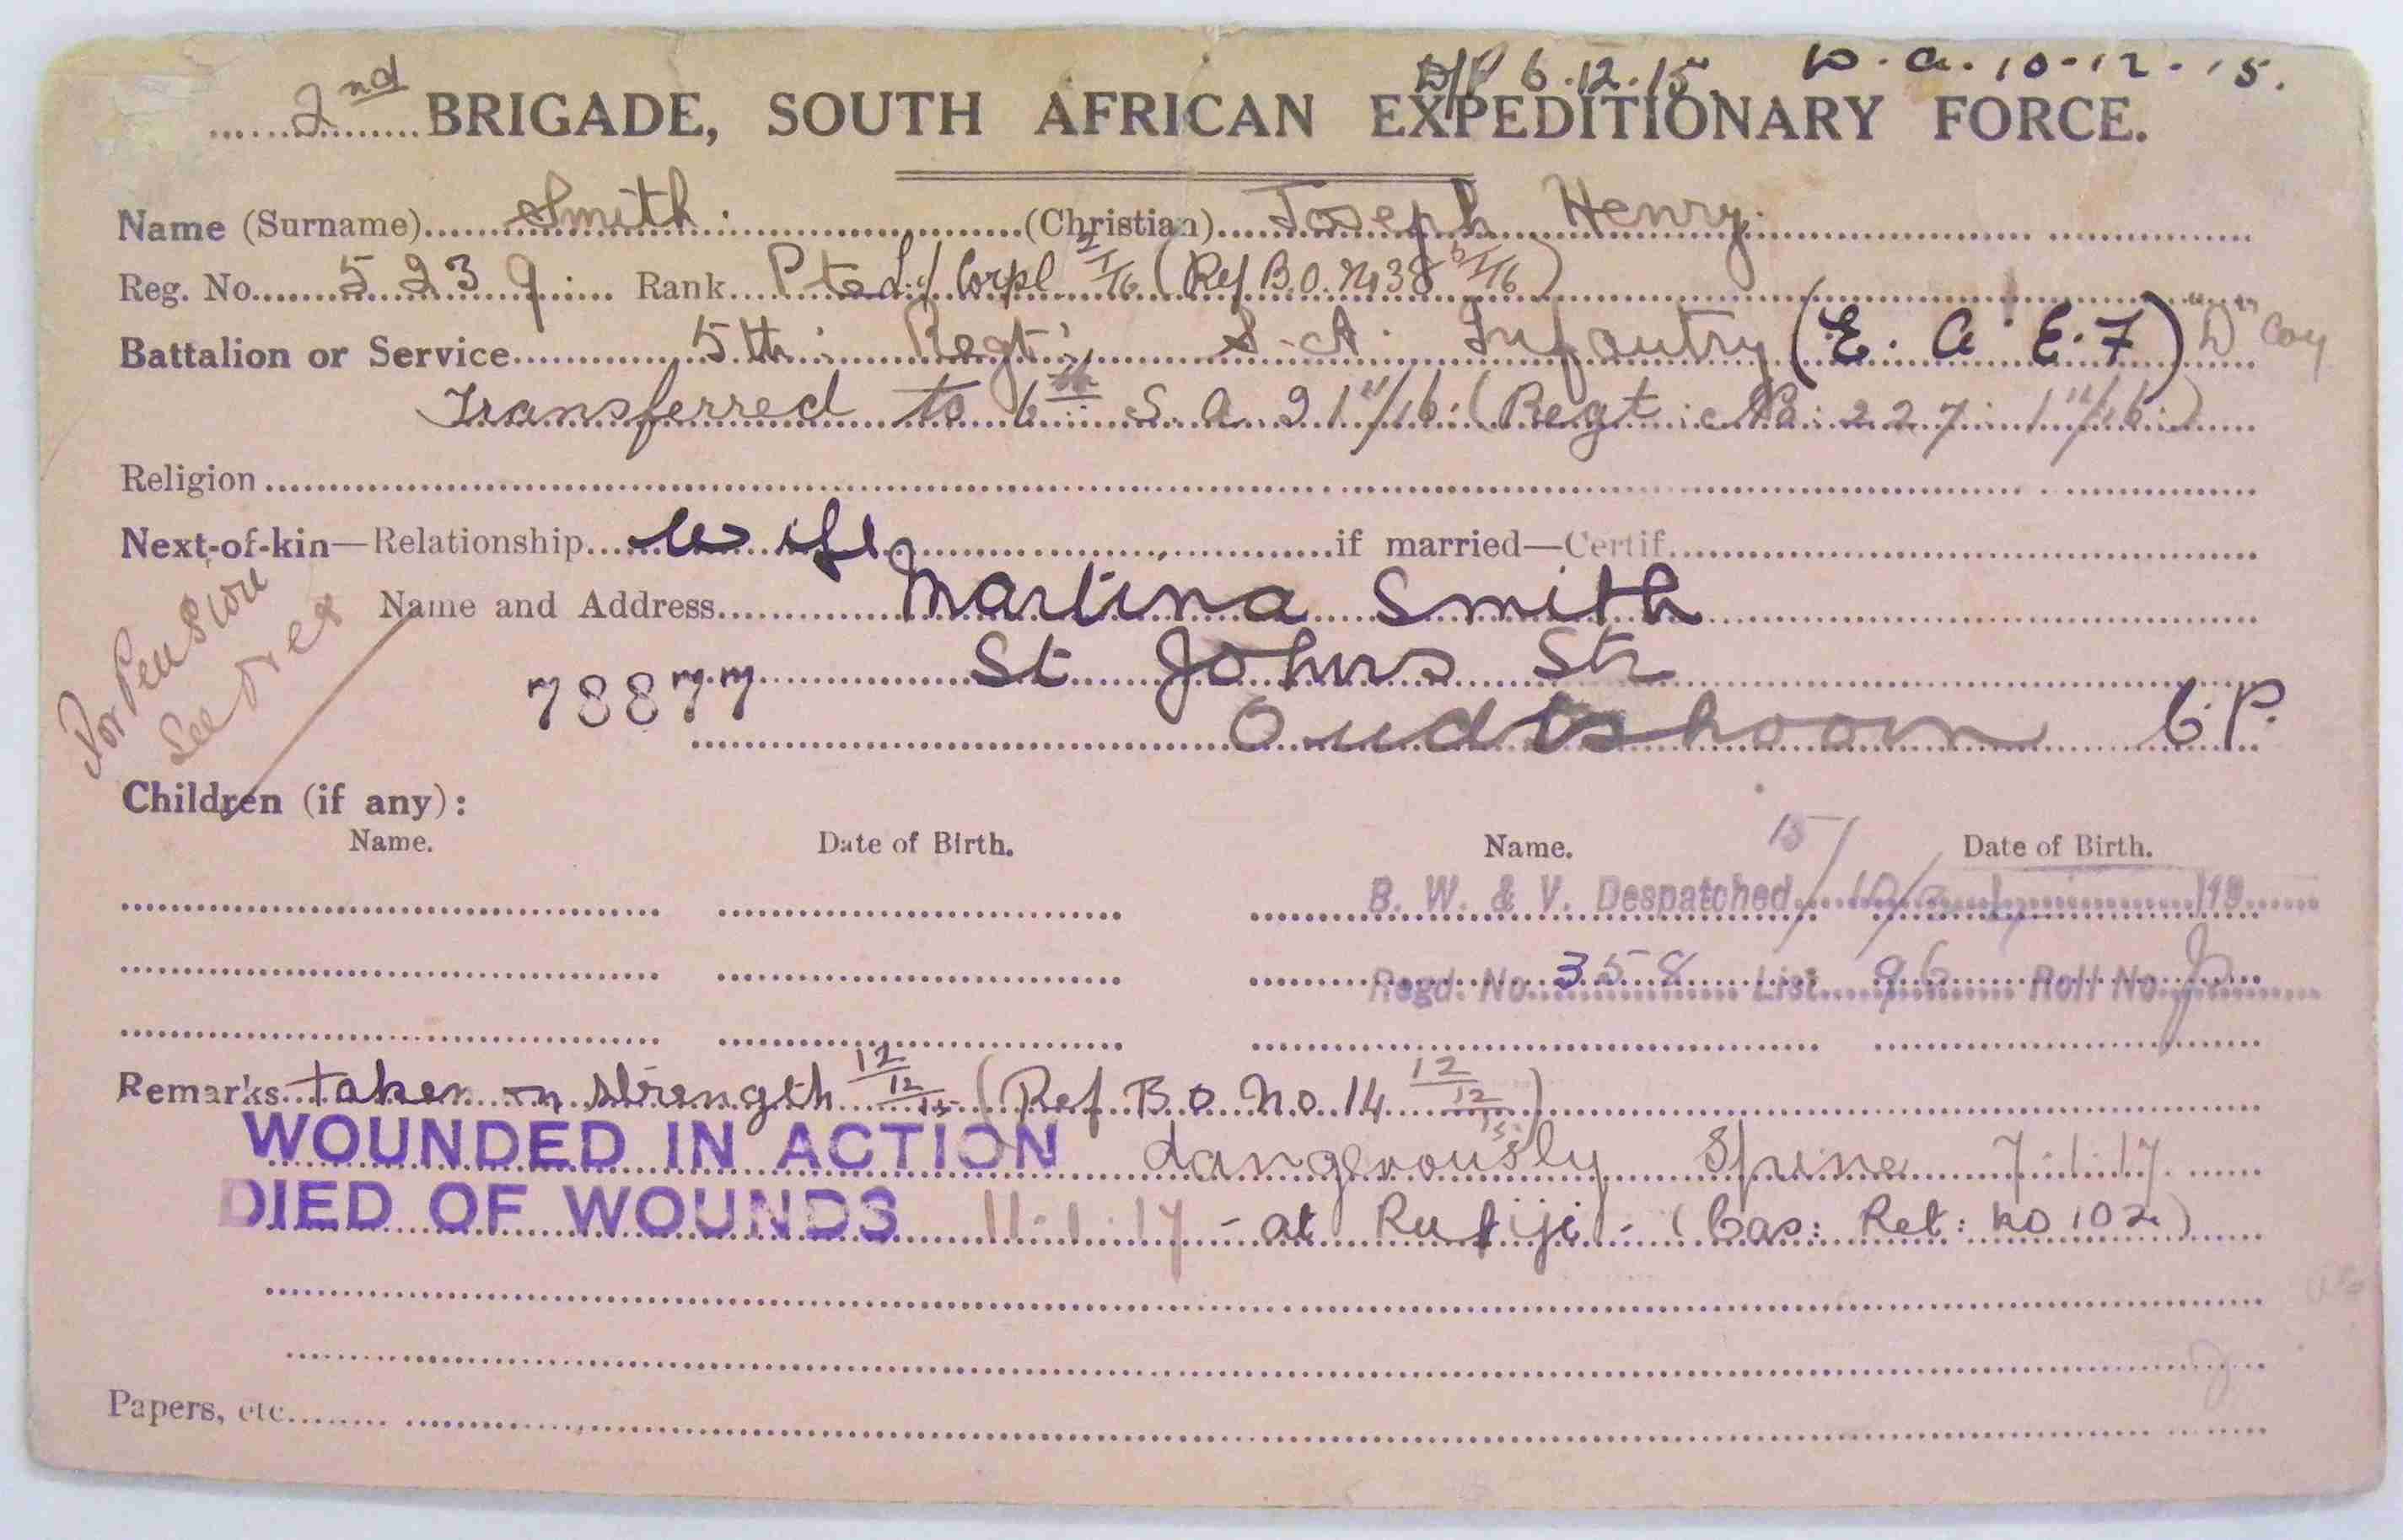 D/P 6.12.15 D.A. 10-12-15.
2nd BRIGADE, SOUTH AFRICAN EXPEDITIONARY FORCE.
Name (Surname) Smith. (Christian) Joseph Henry.
Reg. No. 5239. Rank Pte L/Corpl 2/1/16 (Ref B.O. No 38 6/1/16)
Battalion or Service 5th Regt; S.A. Infantry (E.A.E.F) "D" Coy
Transferred to 6th S.A.I 1/11/16 (Regt: No: 227: 1/11/16.)
Religion
Next-of-kin—Relationship wife if married—Certif.
Name and Address Martina Smith
St Johns Str
78877
Oudtshoorn C.P.
For Pension
See
Children (if any):
Name. Date of Birth. Name. Date of Birth.
B. W. & V. Despatched 15/10/21 19
Regd. No. 358 List 96 Roll No.
Remarks taken on strength 12/12/15 (Ref B.O. No. 14 12/12/15)
WOUNDED IN ACTION dangerously Spine 7.1.17.
DIED OF WOUNDS 11.1.17 - at Rufiji - (Cas: Ret: No 102)
Papers, etc.